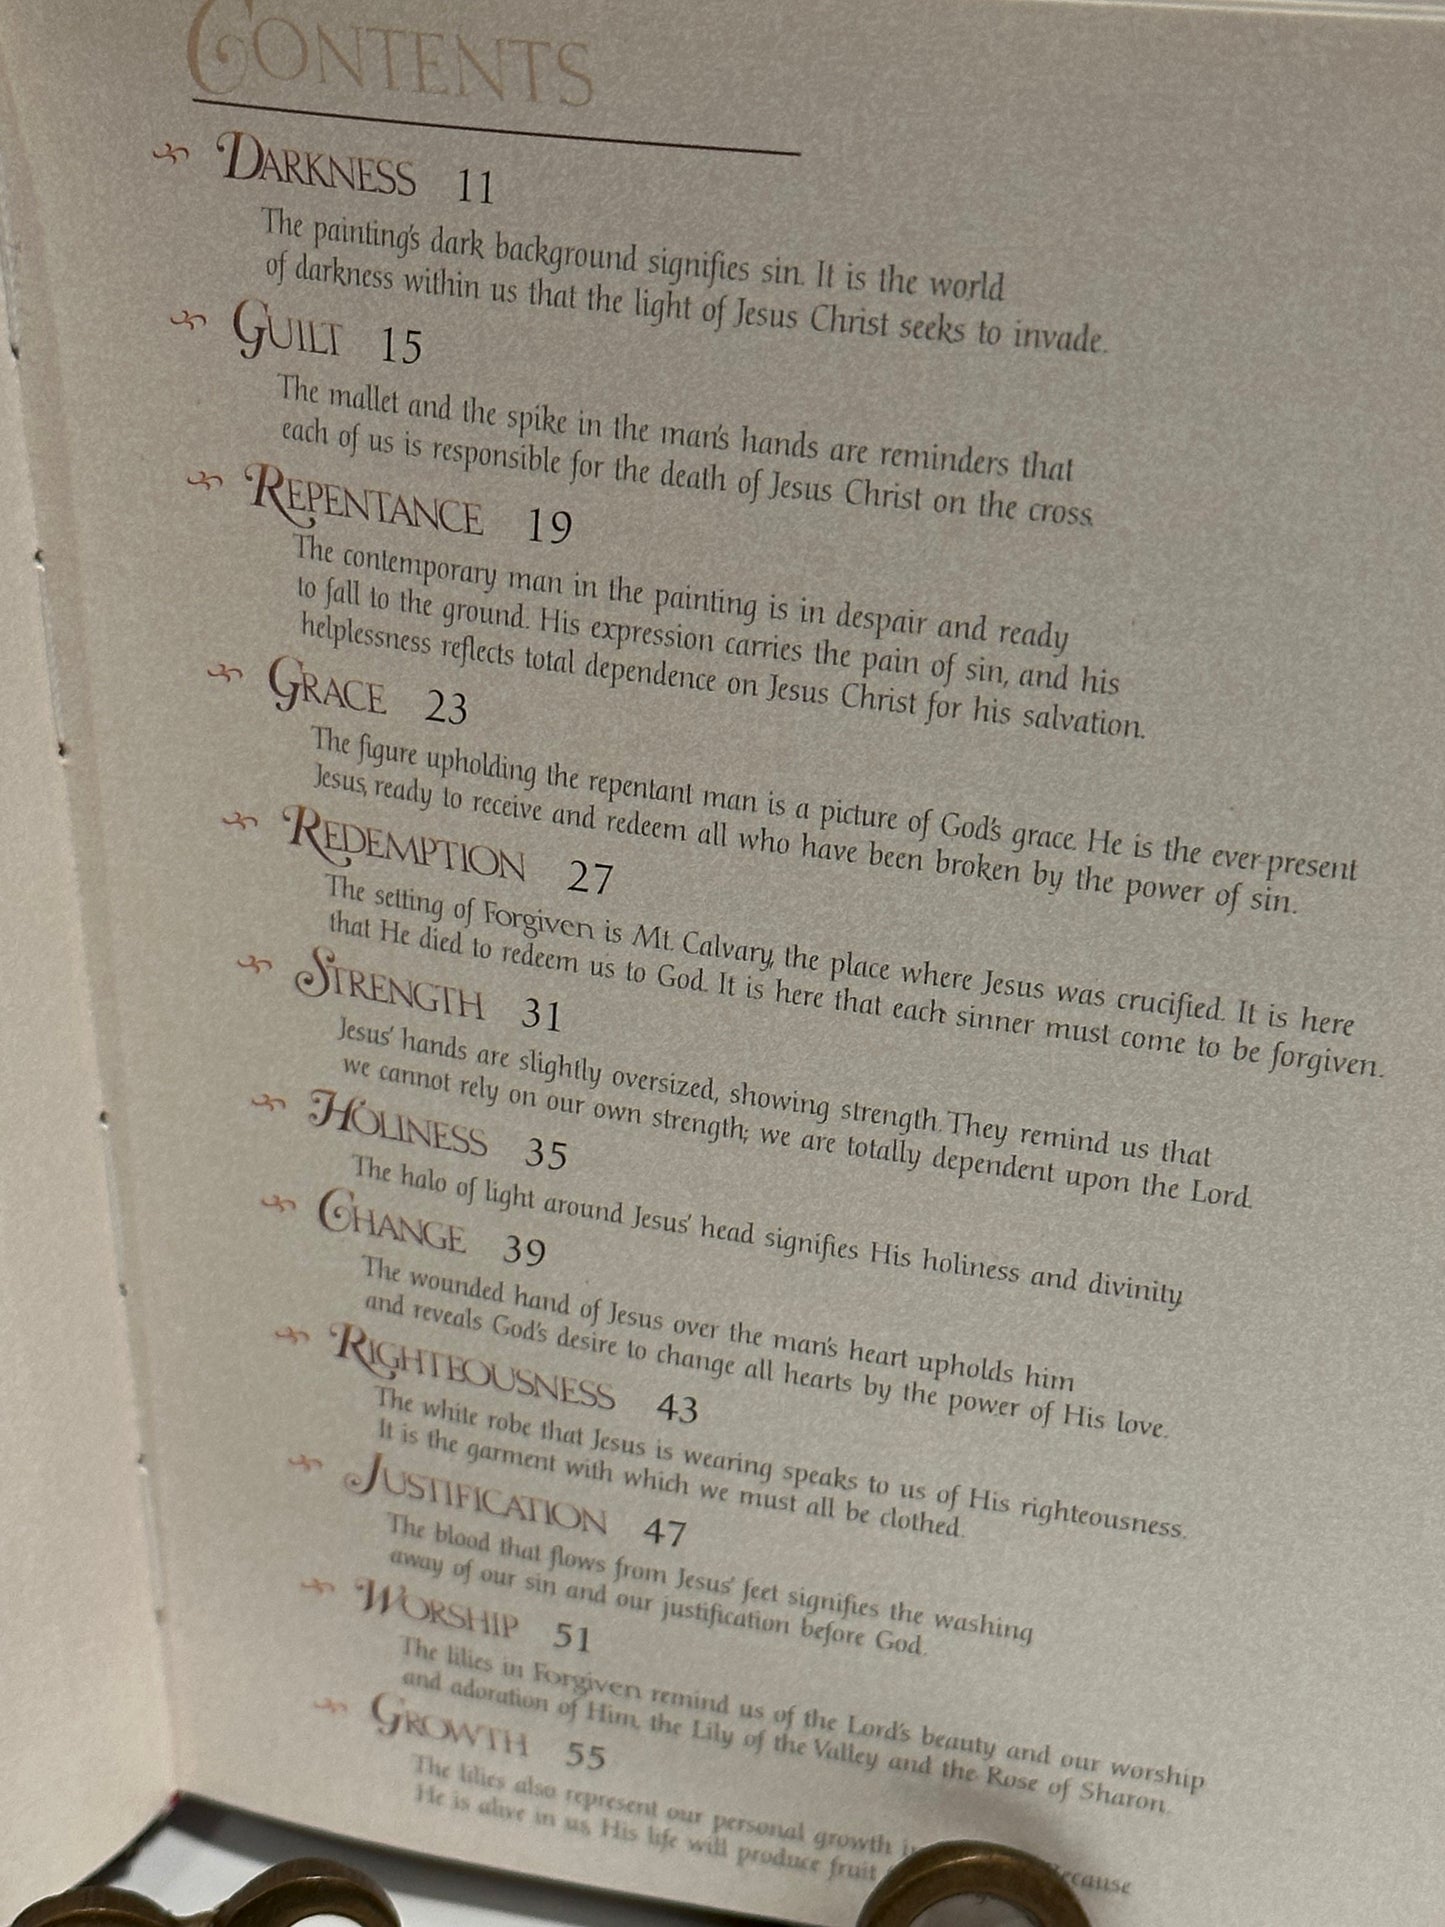 CONTENTS
DARKNESS 11
The painting's dark background signifies sin. It is the world
of darkness within us that the light of Jesus Christ seeks to invade.
GUILT 15
The mallet and the spike in the man's hands are reminders that
each of us is responsible for the death of Jesus Christ on the cross.
REPENTANCE 19
The contemporary man in the painting is in despair and ready
to fall to the ground. His expression carries the pain of sin, and his
helplessness reflects total dependence on Jesus Christ for his salvation.
GRACE 23
The figure upholding the repentant man is a picture of God's grace. He is the ever-present
Jesus, ready to receive and redeem all who have been broken by the power of sin.
REDEMPTION 27
The setting of Forgiven is Mt. Calvary, the place where Jesus was crucified. It is here
that He died to redeem us to God. It is here that each sinner must come to be forgiven.
STRENGTH 31
Jesus' hands are slightly oversized, showing strength. They remind us that
we cannot rely on our own strength; we are totally dependent upon the Lord.
HOLINESS 35
The halo of light around Jesus' head signifies His holiness and divinity
CHANGE 39
The wounded hand of Jesus over the man's heart upholds him
and reveals God's desire to change all hearts by the power of His love.
RIGHTEOUSNESS 43
The white robe that Jesus is wearing speaks to us of His righteousness.
It is the garment with which we must all be clothed.
JUSTIFICATION 47
The blood that flows from Jesus' feet signifies the washing
away of our sin and our justification before God.
WORSHIP 51
The lilies in Forgiven remind us of the Lord's beauty and our worship
and adoration of Him, the Lily of the Valley and the Rose of Sharon.
GROWTH 55
The lilies also represent our personal growth
He is alive in us, His life will produce fruit